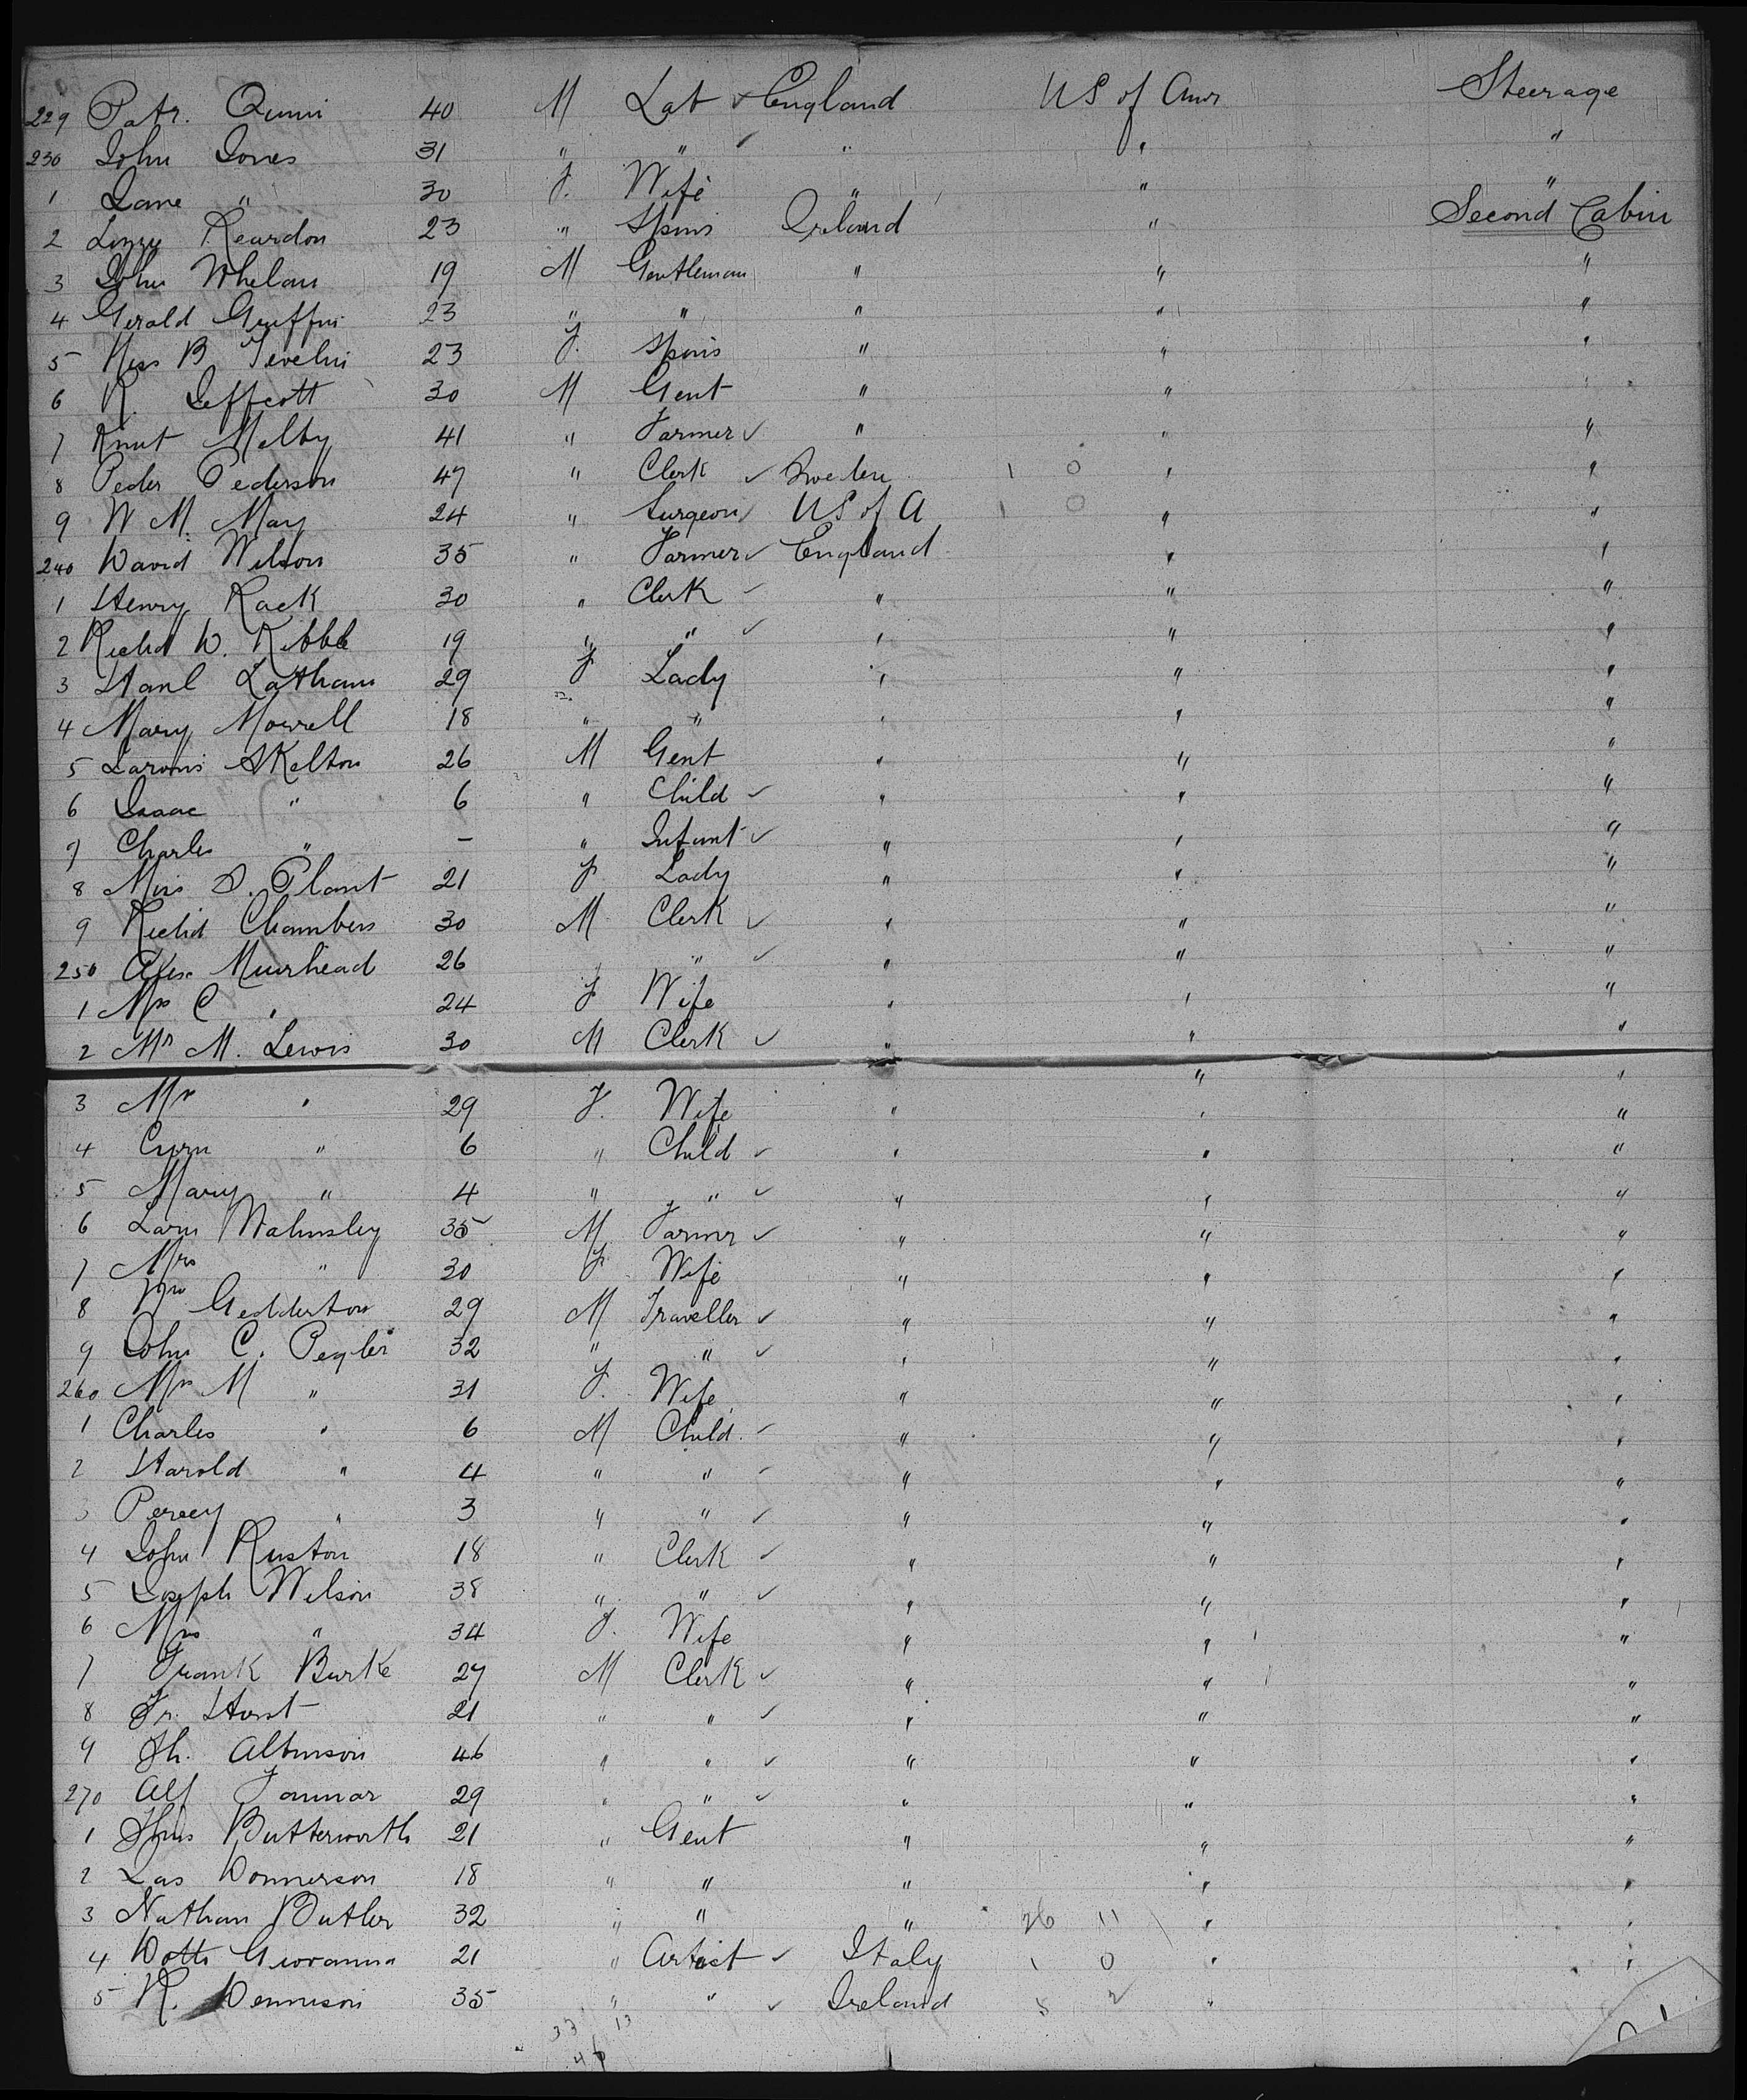 229 Patr. Quinn 40 M Lab ✓ England US of Amr Steerage
230 John Jones 31 " " ✓ " " "
1 Jane " 30 F. Wife " " "
2 Lizzy Reardon 23 " Spins Ireland " Second Cabin
3 John Whelan 19 M Gentleman " " "
4 Gerald Griffin 23 " " " " "
5 Miss B. 23 F. Spins " " "
6 R. Jeffcott 30 M Gent " " "
7 Knut Melby 41 " Farmer ✓ " " "
8 Peder Pederson 47 " Clerk ✓ Sweden 1 0 " "
9 W M. May 24 " Surgeon ✓ US of A 1 0 " "
240 David Wilson 35 " Farmer ✓ England " "
1 Henry Rack 30 " Clerk ✓ " " "
2 Richd W. 19 " " ✓ " " "
3 Latham 29 F Lady " " "
4 Mary 18 " " " " "
5 Skelton 26 M Gent " " "
6 Isaac " 6 " Child ✓ " " "
7 Charles " – " Infant ✓ " " "
8 Miss S. Plant 21 F. Lady " " "
9 Richd Chambers 30 M Clerk ✓ " " "
250 Alex Muirhead 26 " " ✓ " " "
1 Mrs C " 24 F Wife " " "
2 Mr M. Lewis 30 M Clerk ✓ " " "
3 Mrs " 29 F. Wife " " "
4 " 6 " Child ✓ " " "
5 Mary " 4 " " ✓ " " "
6 Walmsley 35 M Farmer ✓ " " "
7 Mrs " 30 F Wife " " "
8 Wm Gedderton 29 M Traveller ✓ " " "
9 John C. Pegler 32 " " ✓ " " "
260 Mrs M " 31 F. Wife " " "
1 Charles " 6 M Child ✓ " " "
2 Harold " 4 " " ✓ " " "
3 Percy " 3 " " ✓ " " "
4 John Ruston 18 " Clerk ✓ " " "
5 Joseph Wilson 38 " " ✓ " " "
6 Mrs " 34 F. Wife " " "
7 Frank Burke 27 M Clerk ✓ " " "
8 Fr. Hurst 21 " " ✓ " " "
9 Th. 46 " " ✓ " " "
270 Alf 29 " " ✓ " " "
1 Thos Butterworth 21 " Gent " " "
2 Jas Donnerson 18 " " " " "
3 Nathan Butler 32 " " " 26 11 " "
4 21 " Artist ✓ Italy 1 0 " "
5 R. Dennison 35 " " ✓ Ireland 5 2 " "
33 13
46